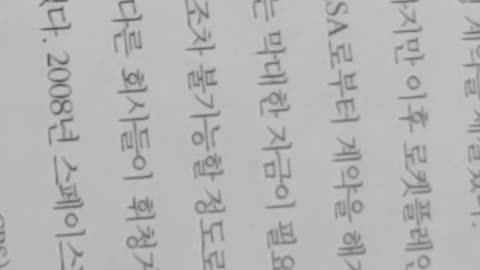 계약을 체결했다.
지만 이후 로켓플레인
SA로부터 계약을 해지
는 막대한 자금이 필요
조차 불가능할 정도로
다른 회사들이 휘청거
다. 2008년 스페이스